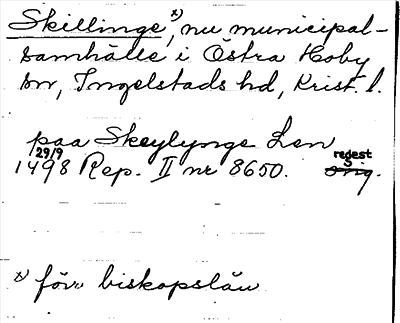 Skillinge x), nu municipal-
samhälle i Östra Hoby
sn, Ingelstads hd, Krist. l.
paa Skeylynge Len
29/9 regest
1498 Rep. II nr 8650. orig.
x) förr biskopslän